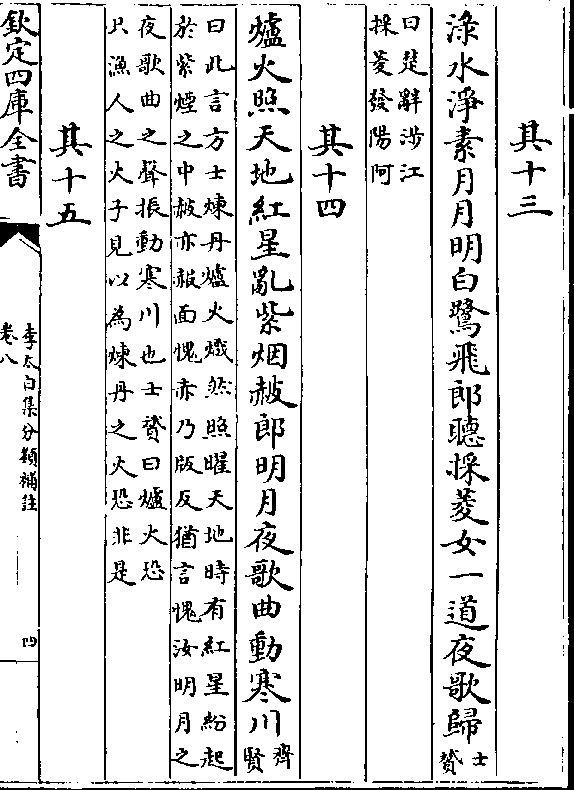 其十三
淥水淨素月月明白鷺飛郎聽採菱女一道夜歌歸士贇
曰楚辭涉江
採菱發陽阿
其十四
爐火照天地紅星亂紫烟赧郎明月夜歌曲動寒川齊賢
曰此言方士煉丹爐火熾然照曜天地時有紅星紛起
於紫煙之中赧亦赧面愧赤乃版反猶言愧汝明月之
夜歌曲之聲振動寒川也士贇曰爐火恐
只漁人之火子見以為煉丹之火恐非是
其十五
欽定四庫全書
李太白集分類補註
卷八
四